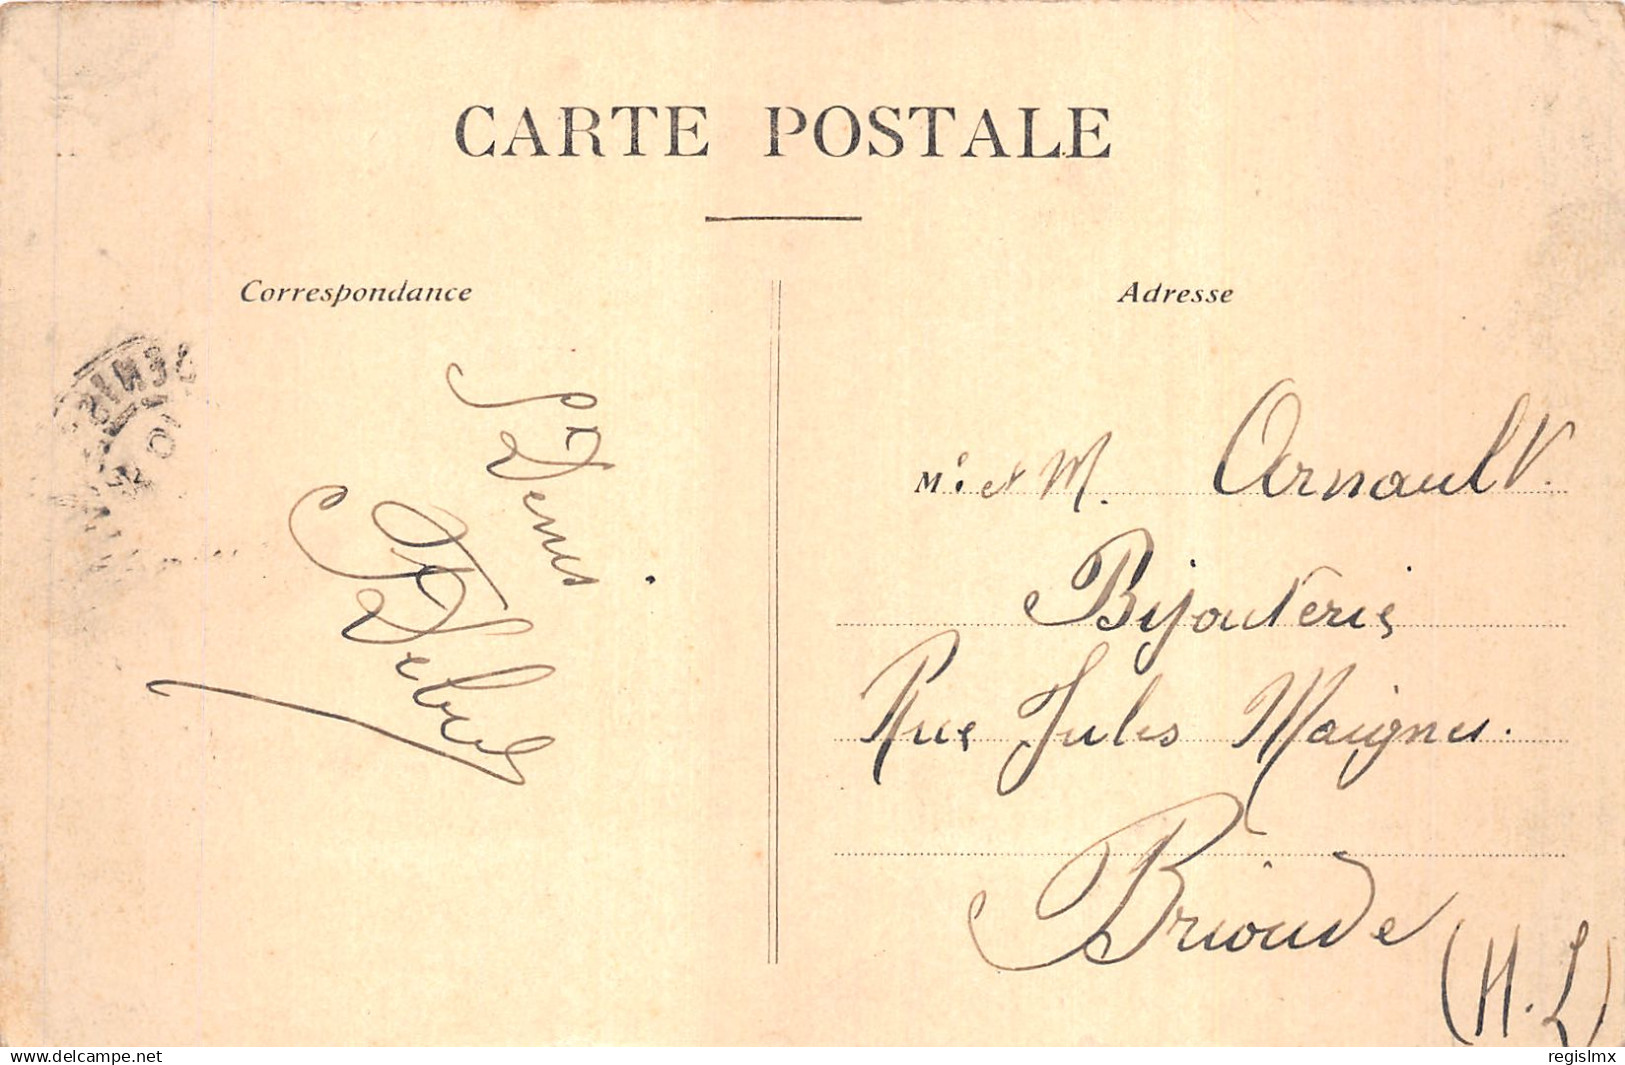 CARTE POSTALE
Correspondance
Adresse
St Denis
Debrue
Mr. et M. Arnault V.
Bijouterie
Rue Jules Maigne.
Brioude
(H.L)
delcampe.net
regislmx